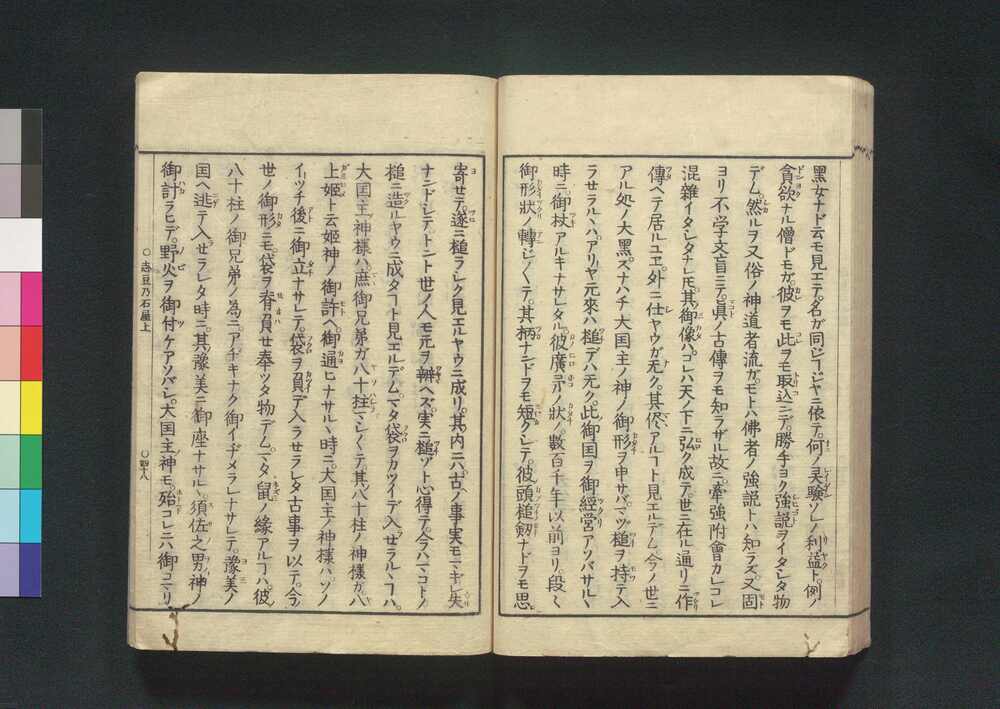 黒女ナド云モ見エテ。名ガ同ジコジヤニ依テ。何ノ灵験ソレノ利益ト。例ノ
貪欲ナル僧ドモガ。彼ヲモ此ヲモ取込ンデ。勝手ヨク強説ヲイタシタ物
デム。然ルヲ又俗ノ神道者流ガ。モトハ佛者ノ強説トハ知ラズ。又固
ヨリ不学文盲ニテ。眞ノ古傳ヲモ知ラザル故ニ。牽強附會カレコレ
混雑イタシタナレ𪜈。其御像ハ。コレハ天ノ下ニ弘ク成テ。世ニ在ル通リニ作
傳ヘテ居ルユヱ。外ニ仕ヤウガ无ク。其侭アルヿト見エルデム。今ノ世ニ
アル処ノ大黒。スナハチ大国主ノ神ノ御形ヲ申サバ。マヅ槌ヲ持テ入
ラセラルヽハ。アリヤ元來ハ槌デハ无ク。此御国ヲ御經営アソバサルヽ
時ニ。御杖アルキナサレタル。彼廣矛ノ状ノ。数百千年以前ヨリ。段〻
御形状ノ轉ジ〱テ。其柄ナンドヲモ短クシテ。彼頭槌劔ナドヲモ思
寄セテ。遂ニ槌ラシク見エルヤウニ成リ。其内ニハ古ノ事実モマギレ失
ナンドシテ。トント世ノ人モ元ヲ辨ヘズ。実ニ槌ゾト心得テ。今ハマコトノ
槌ニ造ルヤウニ成タヿト見エルデム。マタ袋ヲカツイデ入ラセラルヽヿハ。
大国主ノ神様ハ。庶御兄弟ガ八十柱マシ〱テ。其八十柱ノ神様ガ。八
上姫ト云姫神ノ御許ヘ。御通ヒナサルヽ時ニ。大国主ノ神様ハ。ソノ
イツチ後ニ御立ナサレテ。袋ヲ負デ入ラセラレタ古事ヲ以テ。今ノ
世ノ御形ニモ。袋ヲ脊負セ奉ツタ物デム。マタ鼠ノ縁アルヿハ。彼
八十柱ノ御兄弟ノ為ニ。アヂキナク御イヂメラレナサレテ。豫美ノ
国ヘ逃テ入セラレタ時ニ。其豫美ニ御座ナサルヽ。須佐之男ノ神ノ
御計ラヒデ。野火ヲ御付ケアソバシ。大国主神モ。殆コレニハ御コマリ
○志豆乃石屋上
○四十八